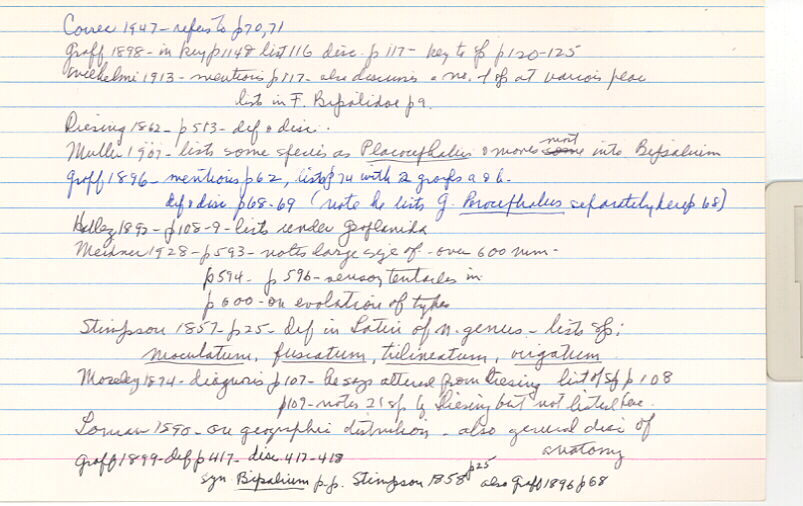 Correc 1947 - refers to p70,71
Graff 1898 - in key p114 & list 116 disc. p 117 - key to sp p120-125
Wilhelmi 1913 - mentions p117 - also discusses a no. of sp at various places
lists in F. Bipaliidae p9.
Diesing 1862 - p513 - def & disc.
Muller 1907 - lists some species as Placocephalus & moves some most into Bipalium
Graff 1896 - mentions p62, list p74 with 2 groups a & b.
def & disc p68-69 (note he lists G. Perocephalus separately here p68)
Hallez 1892 - p108-9 - lists under Geoplanida
Meixner 1928 - p593 - notes large size of - over 600 mm -
p594 - p596 - sensory tentacles in
p600 - on evolution of types
Stimpson 1857 - p25 - Def in Latin of n. genus - lists sp:
maculatum, fuscatum, trilineatum, virgatum
Moseley 1874 - diagnosis p107 - he says altered from Diesing list of sp p108
p109 - notes 2 sp by Diesing but not listed here.
Loman 1890 - on geographic distribution - also general disc of
anatomy
Graff 1899 - def p417 - disc. 417-418
syn Bipalium p.p. Stimpson 1858 p25 also Graff 1896 p68